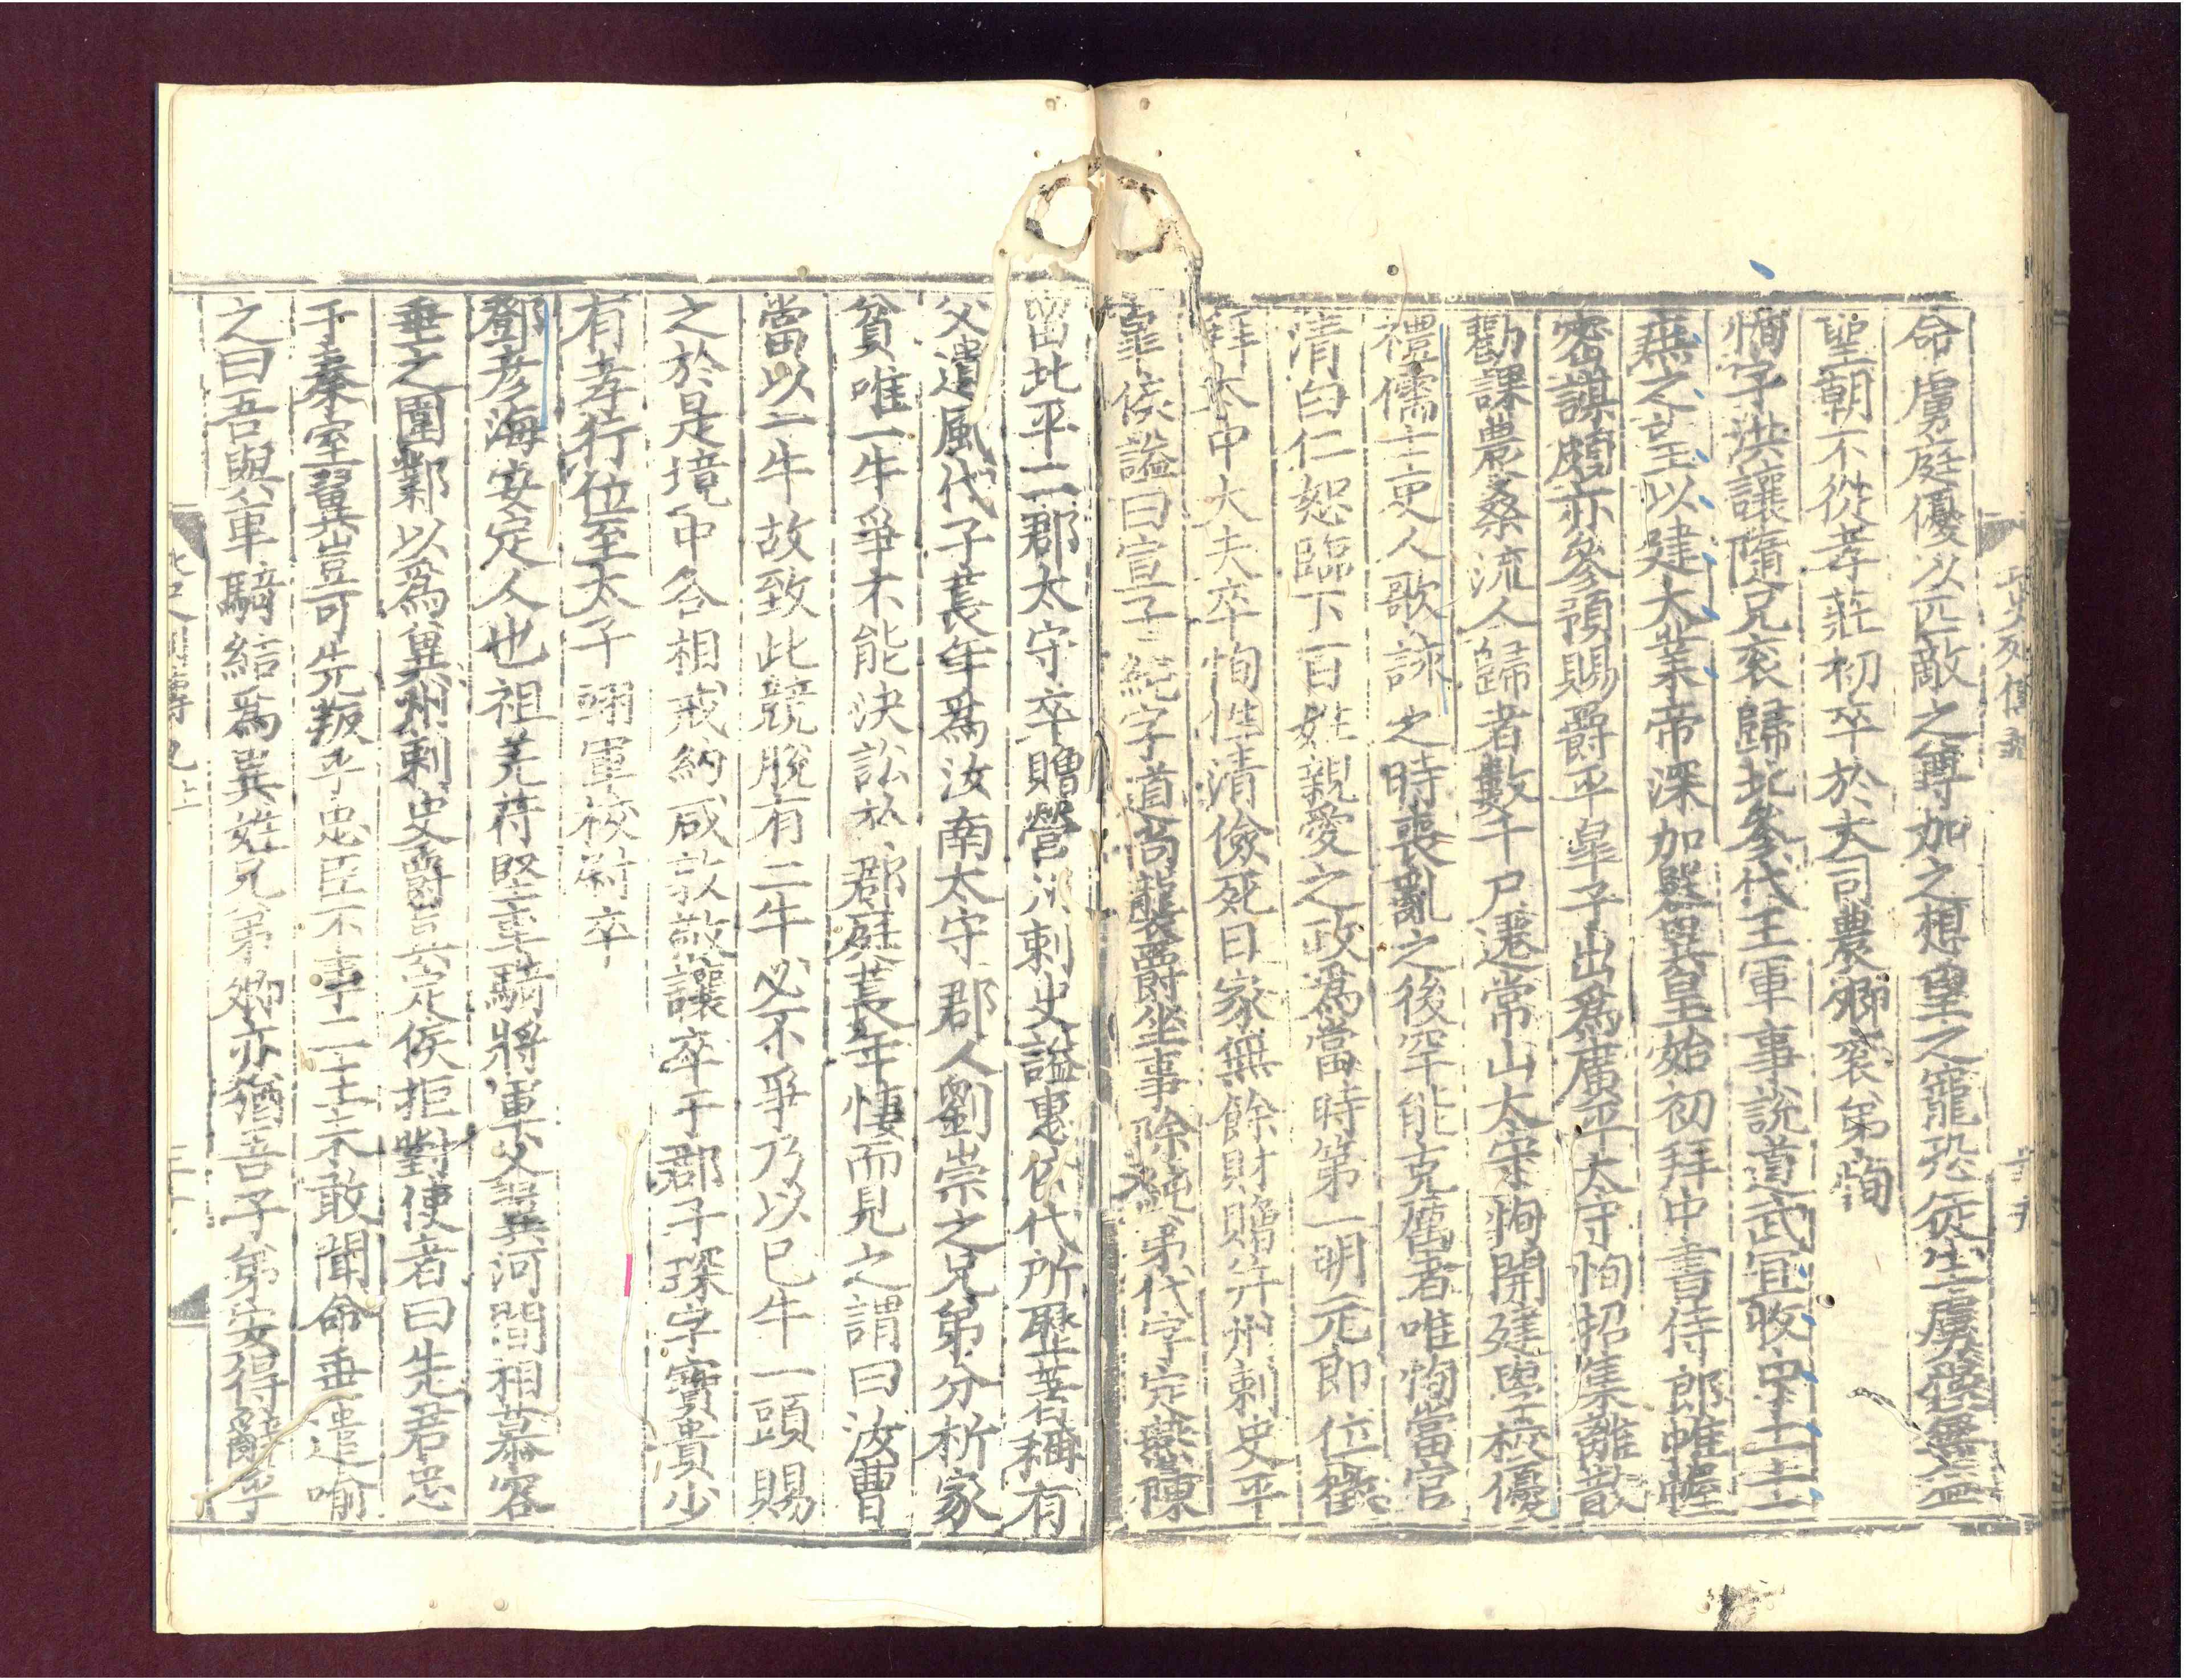 命虜庭優以匹敵之尊加之想望之寵恐從生虜發無益
聖朝不從孝莊初卒於大司農卿袞弟恂
恂字洪讓隨兄袞歸北參代王軍事說道武宜收中土士
燕之望以建大業帝深加器異皇始初拜中書侍郎帷幄
密謀頗亦參預賜爵平皐子出為廣平太守恂招集離散
勸課農桑流人歸者數千戶遷常山太守恂開建學校優
禮儒士吏人歌詠之時喪亂之後罕能克厲者唯恂當官
清白仁恕臨下百姓親愛之政為當時第一明元即位徵
拜太中大夫卒恂性清儉死日家無餘財贈并州刺史平
皐侯謚曰宣子純字道尚襲爵坐事除純弟代字定燕陳
留北平二郡太守卒贈營州刺史謚惠侯代所歷著稱有
父遺風代子萇年為汝南太守郡人劉崇之兄弟分析家
貧唯一牛爭不能決訟於郡庭萇年悽而見之謂曰汝曹
當以二牛故致此競脫有二牛必不爭乃以己牛一頭賜
之於是境中各相戒約咸敦敬讓卒于郡子琛字寶貴少
有孝行位至太子翊軍校尉卒
鄧彥海安定人也祖羌苻堅車騎將軍父翼河間相慕容
垂之圍鄴以為兾州刺史爵真定侯拒對使者曰先君忠
于秦室翼豈可先叛乎忠臣不事二主未敢聞命垂遣喻
之曰吾與車騎結為異姓兄弟卿亦猶吾子弟安得辭乎